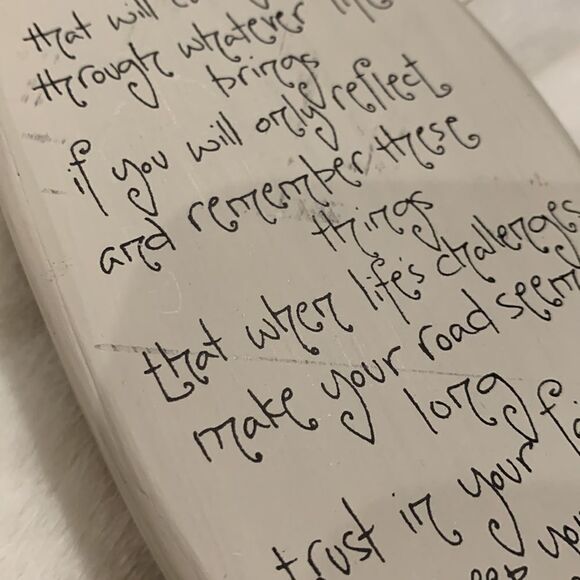 that will
through whatever
brings
if you will only reflect
and remember these
things
that when life's challenges
make your road seem
long
trust in your